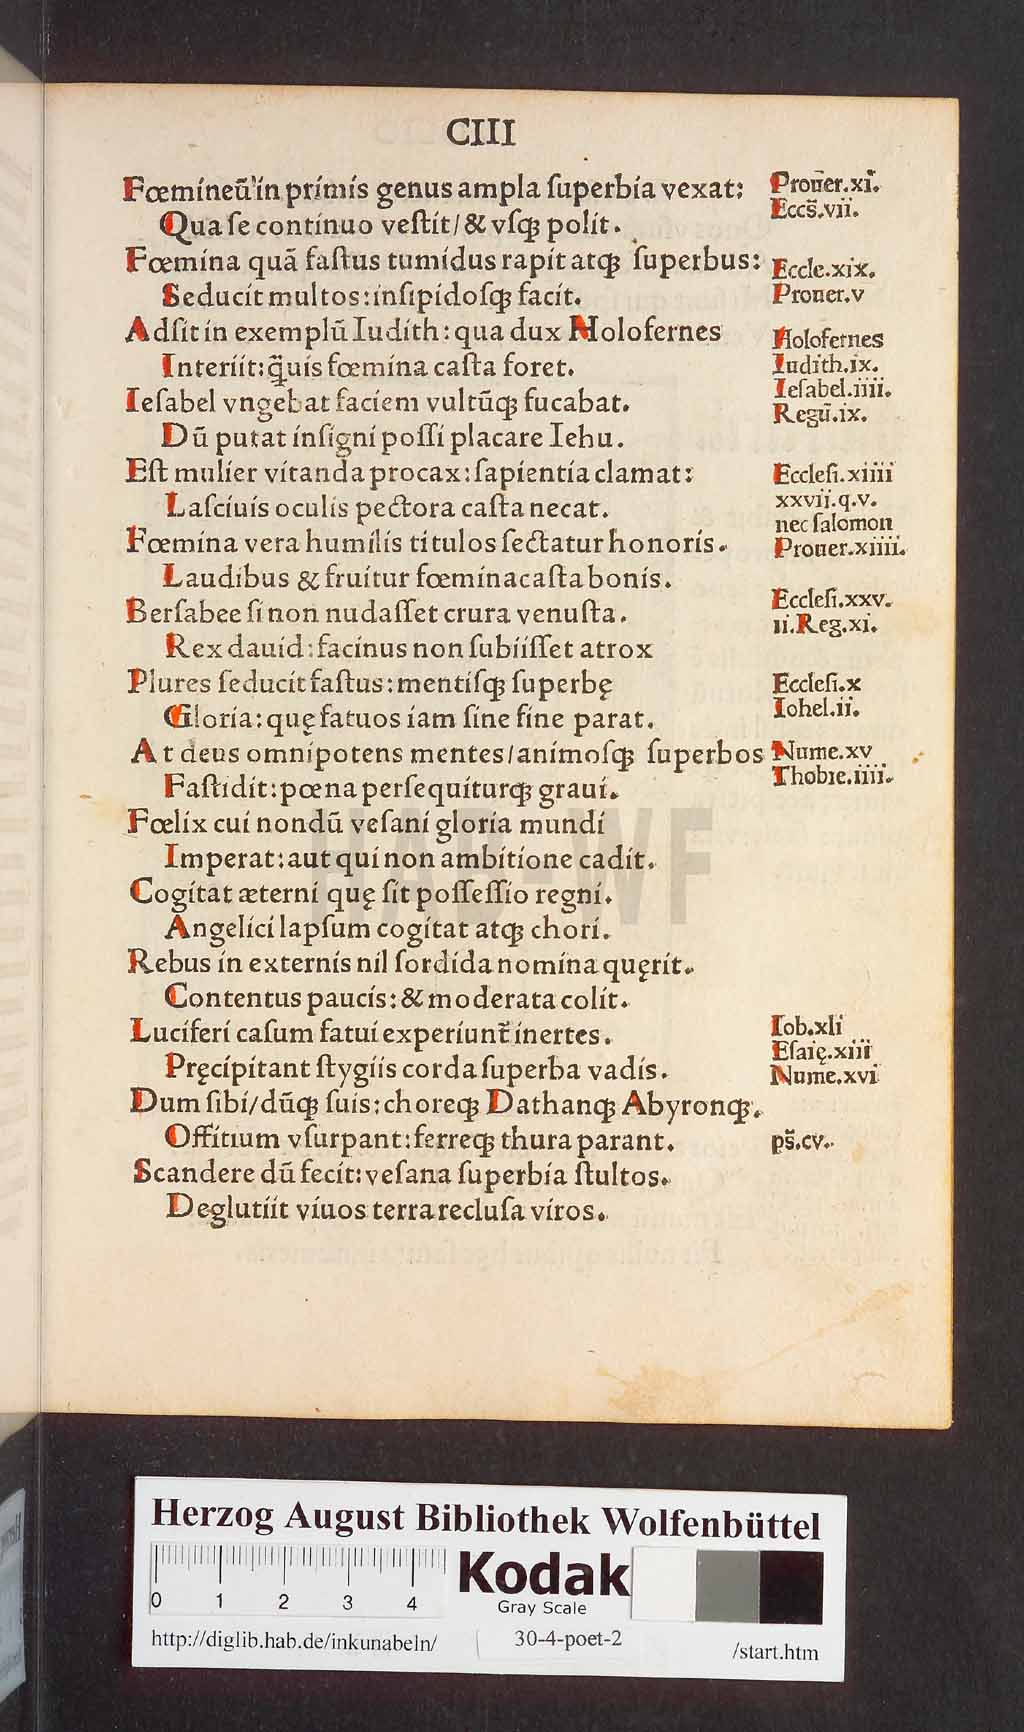 CIII
Fœmineũ in primis genus ampla ſuperbia vexat:
Qua ſe continuo veſtit/ & vſqꝫ polit.
Fœmina quã faſtus tumidus rapit atqꝫ ſuperbus:
Seducit multos: inſipidoſqꝫ facit.
Adſit in exemplũ Iudith: qua dux Holofernes
Interiit: q̃uis fœmina caſta foret.
Ieſabel vngebat faciem vultũqꝫ fucabat.
Dũ putat inſigni poſſi placare Iehu.
Eſt mulier vitanda procax: ſapientia clamat:
Laſciuis oculis pectora caſta necat.
Fœmina vera humilis titulos ſectatur honoris.
Laudibus & fruitur fœmina caſta bonis.
Berſabee ſi non nudaſſet crura venuſta.
Rex dauid: facinus non ſubiiſſet atrox
Plures ſeducit faſtus: mentiſqꝫ ſuperbę
Gloria: quę fatuos iam ſine fine parat.
At deus omnipotens mentes/ animoſqꝫ ſuperbos
Faſtidit: pœna perſequiturqꝫ graui.
Fœlix cui nondũ veſani gloria mundi
Imperat: aut qui non ambitione cadit.
Cogitat æterni quę ſit poſſeſſio regni.
Angelici lapſum cogitat atqꝫ chori.
Rebus in externis nil ſordida nomina quęrit.
Contentus paucis: & moderata colit.
Luciferi caſum fatui experiunt̃ inertes.
Pręcipitant ſtygiis corda ſuperba vadis.
Dum ſibi/ dũqꝫ ſuis: choreqꝫ Dathanqꝫ Abyronqꝫ.
Offitium vſurpant: ferreqꝫ thura parant.
Scandere dũ fecit: veſana ſuperbia ſtultos.
Deglutiit viuos terra recluſa viros.
Prouer.xi.
Eccs̃.vii.
Eccle.xix.
Prouer.v
Holofernes
Iudith.ix.
Ieſabel.iiii.
Regũ.ix.
Eccleſi.xiiii
xxvij.q.v.
nec ſalomon
Prouer.xiiii.
Eccleſi.xxv.
ii.Reg.xi.
Eccleſi.x
Iohel.ii.
Nume.xv
Thobie.iiii.
Iob.xli
Eſaię.xiii
Nume.xvi
ps̃.cv.
HAB WF
Herzog August Bibliothek Wolfenbüttel
0 1 2 3 4
Kodak
Gray Scale
http://diglib.hab.de/inkunabeln/ 30-4-poet-2 /start.htm